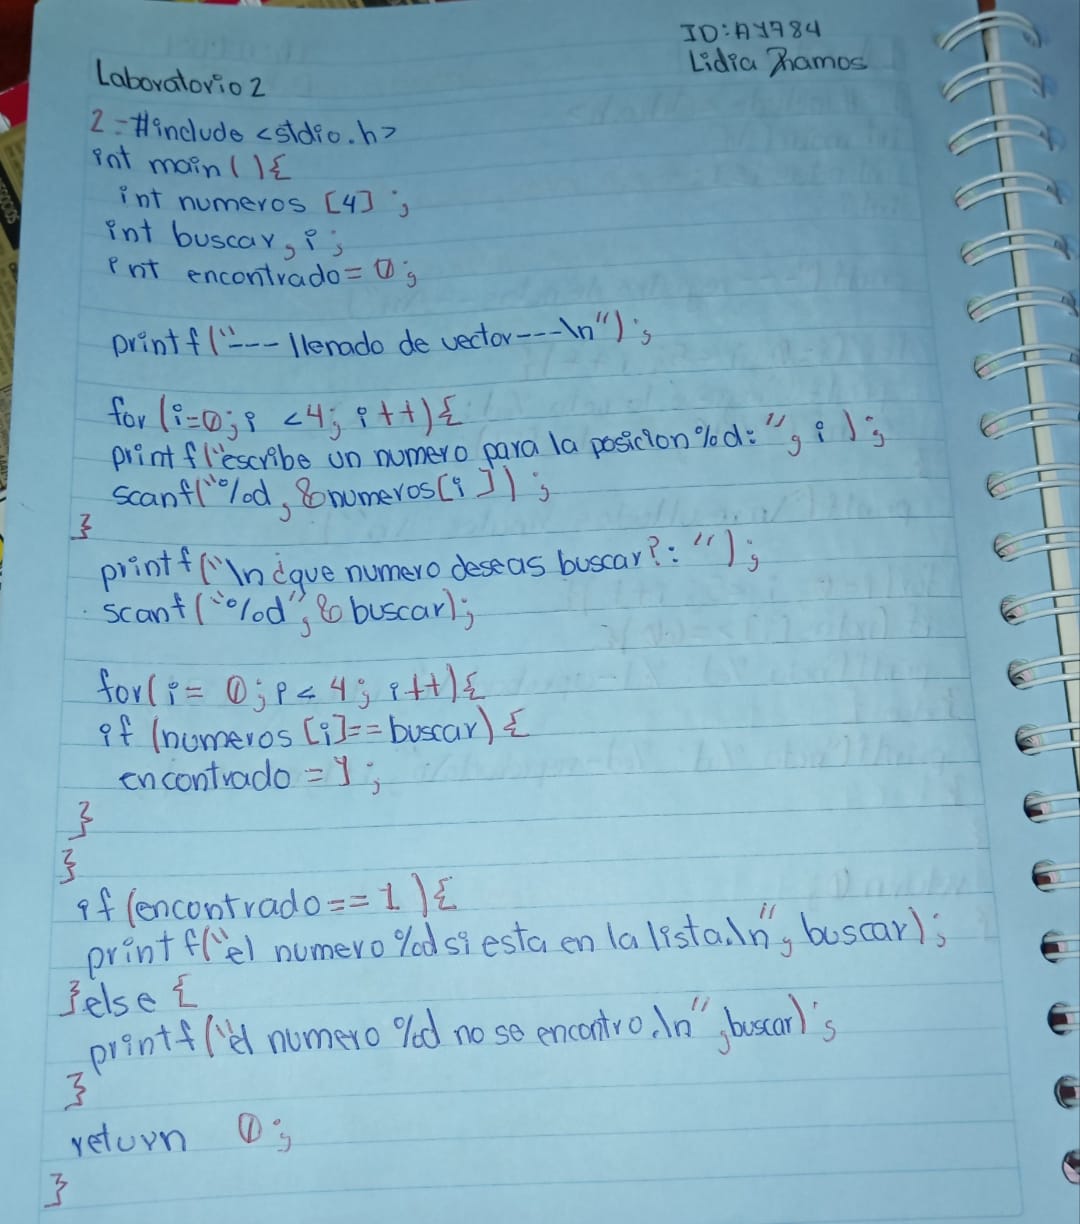 ID: AY784
Lidia Rhamos
Laboratorio 2
2.- #include <stdio.h>
int main ( ) {
int numeros [4] ;
int buscar, i ;
int encontrado = 0 ;
printf ("--- llenado de vector---\n") ;
for (i=0; i <4; i++) {
printf ("escribe un numero para la posicion %d: ", i ) ;
scanf ("%d, &numeros[i ]) ;
}
printf ("\n ¿que numero deseas buscar?: ") ;
scanf ("%d", & buscar) ;
for ( i = 0 ; i < 4 ; i++) {
if (numeros [i]==buscar) {
encontrado = 1 ;
}
}
if (encontrado == 1 ) {
printf ("el numero %d si esta en la lista.\n", buscar) ;
}else {
printf ("el numero %d no se encontro.\n", buscar) ;
}
return 0 ;
}